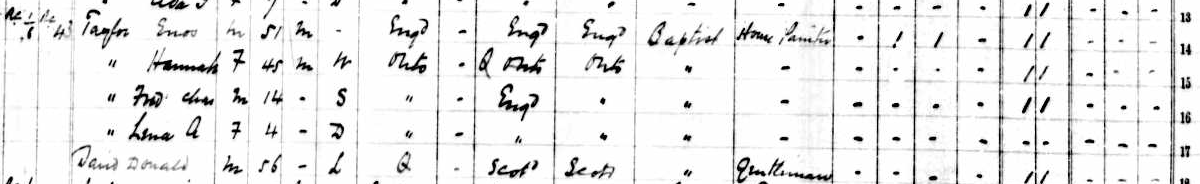 13
43 Taylor Enos M 51 M - Engd - Engd Engd Baptist House Painter - 1 1 - 11 - - - 14
" Hannah F 45 M W Onto - Q Onto Onto " - - - - - 11 - - - 15
" Fred Chas M 14 - S " - Engd " " - - - - - 11 - - - 16
" Lena A F 4 - D " - " " " - - - - - - - - 17
David Donald M 56 - L Q - Scotd Scotd " Gentleman - - - - 11 - - - 18